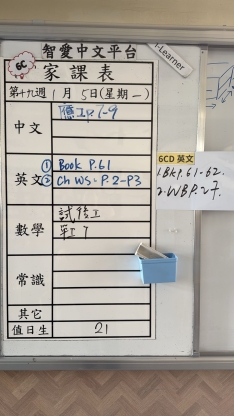 智愛中文平台
i-Learner
6C
家課表
第十九週 1月 5日(星期一)
中文
英文
① Book P.61
② Ch WS: P.2-P3
6CD 英文
1. BK P.61-62.
2. WB P.27.
數學
常識
其它
值日生 21